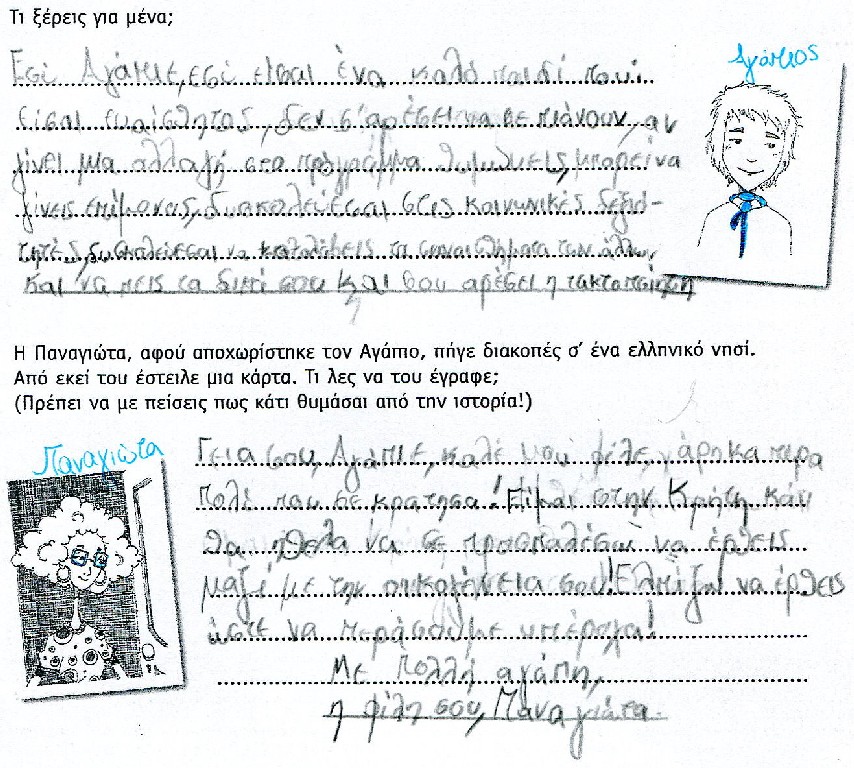 Τι ξέρεις για μένα;
Αγάπιος
Εσύ Αγάπιε, εσύ είσαι ένα καλό παιδί που
είσαι ευαίσθητος, δεν σ'αρέσει να σε πιάνουν, αν
γίνει μια αλλαγή στο πρόγραμμα θυμώνεις, μπορεί να
γίνεις επίμονας, δυσκολεύεσαι στις κοινωνικές δεξιό-
τητές, δυσκολεύεσαι να καταλάβεις τα συναισθήματα των άλλων
και να πεις τα δικά σου και σου αρέσει η τακτοποίηση
Η Παναγιώτα, αφού αποχωρίστηκε τον Αγάπιο, πήγε διακοπές σ' ένα ελληνικό νησί.
Από εκεί του έστειλε μια κάρτα. Τι λες να του έγραφε;
(Πρέπει να με πείσεις πως κάτι θυμάσαι από την ιστορία!)
Παναγιώτα
Γεια σου, Αγάπιε, καλέ μου φίλε, χάρηκα πάρα
πολύ που σε κράτησα! Είμαι στην Κρήτη και
θα ήθελα να σε προσκαλέσω να έρθεις
μαζί με την οικογένεια σου! Ελπίζω να έρθεις
ώστε να περάσουμε υπέροχα!
Με πολλή αγάπη,
η φίλη σου, Παναγιώτα.